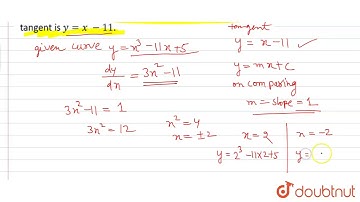 tangent is y = x − 11.
tangent
given curve y = x³ − 11x + 5
y = x − 11 ✓
dy/dx = 3x² − 11
y = mx + c
on comparing
m = slope = 1
3x² − 11 = 1
3x² = 12
x² = 4
x = ±2
x = 2
y = 2³ − 11×2+5
x = −2
y =
doubtnut